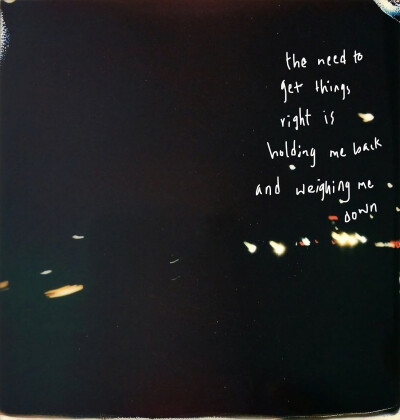 the need to
get things
right is
holding me back
and weighing me
down